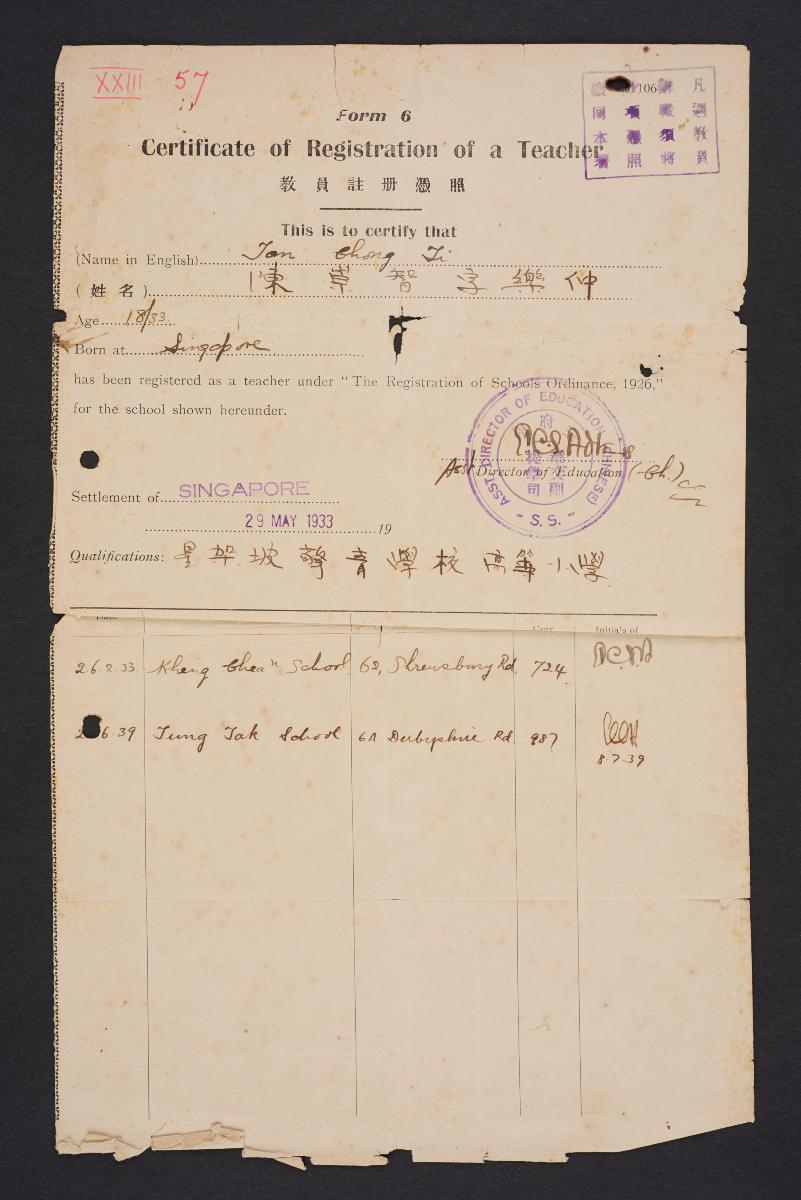 XXIII 57
106
凡遇教員
辭職須將
項憑照
繳回本署
Form 6
Certificate of Registration of a Teacher
教員註册憑照
This is to certify that
(Name in English) Tan Chong Ti
(姓名) 陳崇智字樂仲
Age 18/33
Born at Singapore
has been registered as a teacher under "The Registration of Schools Ordinance, 1926,"
for the school shown hereunder.
ASST. DIRECTOR OF EDUCATION (CHINESE)
S. S.
Asst Director of Education (Ch.)
Settlement of SINGAPORE
29 MAY 1933 19
Qualifications: 星架坡 育學校高等小學
Date Initials of
26.2.33. Kheng Chean School 62, Shrewsbury Rd. 724
6 39 Tung Tak School 6A Derbyshire Rd 987
8.7.39